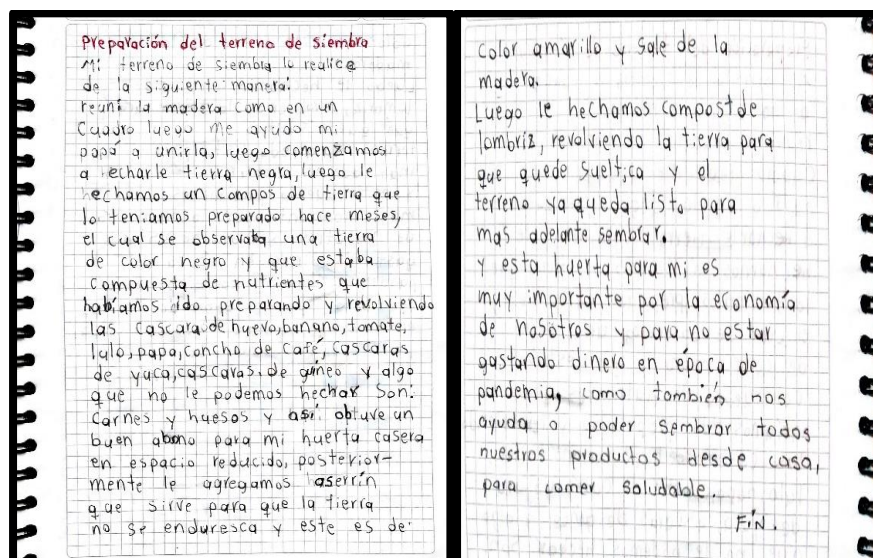 Preparación del terreno de siembra
Mi terreno de siembra lo realice
de la siguiente manera:
reuní la madera como en un
Cuadro luego me ayudo mi
papá a unirla, luego comenzamos
a echarle tierra negra, luego le
hechamos un compos de tierra que
lo teniamos preparado hace meses,
el cual se observaba una tierra
de color negro y que estaba
compuesta de nutrientes que
habíamos ido preparando y revolviendo
las cascara de huevo, banano, tomate,
lulo, papa, concho de café, cascaras
de yuca, cascaras de guineo y algo
que no le podemos hechar son:
Carnes y huesos y así obtuve un
buen abono para mi huerta casera
en espacio reducido, posterior-
mente le agregamos aserrín
que sirve para que la tierra
no se enduresca y este es de
color amarillo y sale de la
madera.
Luego le hechamos compost de
lombriz, revolviendo la tierra para
que quede sueltica y el
terreno ya queda listo para
mas adelante sembrar.
Y esta huerta para mi es
muy importante por la economía
de nosotros y para no estar
gastando dinero en época de
pandemia, como también nos
ayuda a poder sembrar todos
nuestros productos desde casa,
para comer saludable.
FIN.